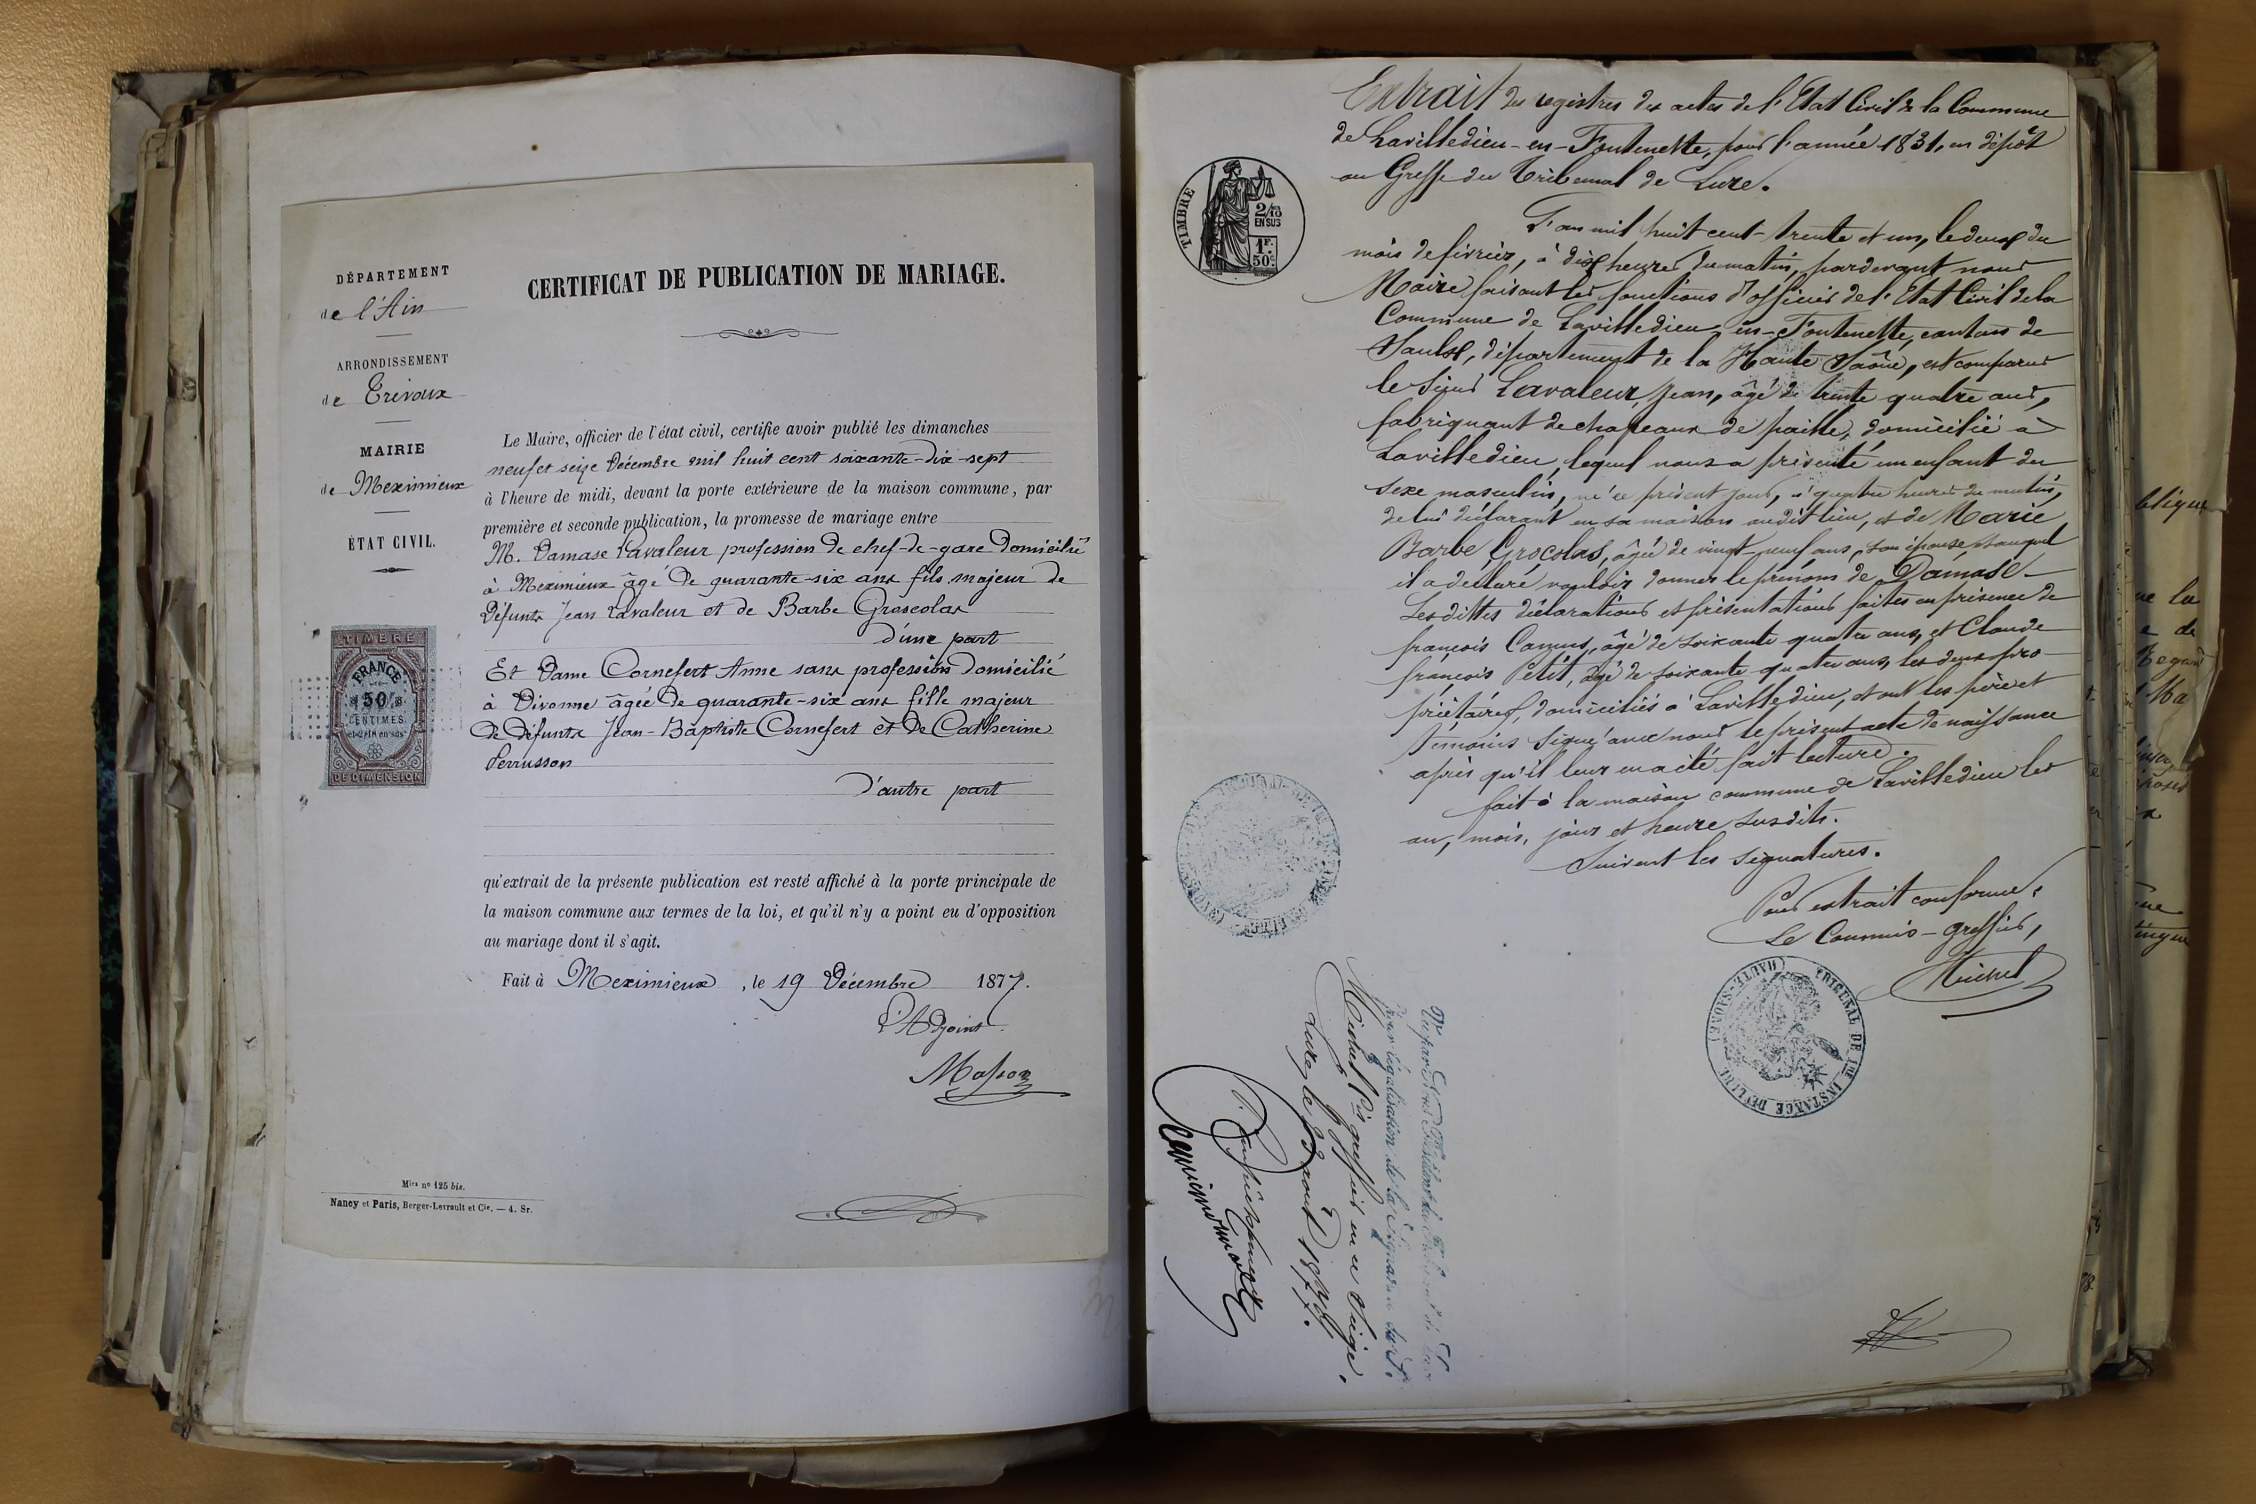 DÉPARTEMENT
de l'Ain
ARRONDISSEMENT
de Trévoux
MAIRIE
de Meximieux
ÉTAT CIVIL.
TIMBRE
FRANCE
50
CENTIMES
et 2/10 en sus
DE DIMENSION
CERTIFICAT DE PUBLICATION DE MARIAGE.
Le Maire, officier de l'état civil, certifie avoir publié les dimanches
neuf et seize Décembre mil huit cent soixante-dix-sept
à l'heure de midi, devant la porte extérieure de la maison commune, par
première et seconde publication, la promesse de mariage entre
M. Damase Lavaleur profession de chef-de-gare domicilié
à Meximieux âgé de quarante-six ans fils majeur de
défunts Jean Lavaleur et de Barbe Groscolas
d'une part
Et Dame Cornefert Anne sans profession domicilié
à Divonne âgée de quarante-six ans fille majeur
de défunts Jean-Baptiste Cornefert et de Catherine
Perrusson
d'autre part
qu'extrait de la présente publication est resté affiché à la porte principale de
la maison commune aux termes de la loi, et qu'il n'y a point eu d'opposition
au mariage dont il s'agit.
Fait à Meximieux, le 19 Décembre 1877.
L'Adjoint
Masson
Mies no 125 bis.
Nancy et Paris, Berger-Levrault et Cie. — 4. Sr.
Extrait des registres des actes de l'Etat Civil de la Commune
de Lavilledieu-en-Fontenette, pour l'année 1831, en dépôt
au Greffe du Tribunal de Lure.
TIMBRE
2/10
EN SUS
1F.
50c.
L'an mil huit cent-trente et un, le deux du
mois de février, à dix heures du matin, pardevant nous
Maire faisant les fonctions d'officier de l'Etat Civil de la
Commune de Lavilledieu-en-Fontenette, canton de
Saulx, département de la Haute Saône, est comparu
le sieur Lavaleur, Jean, âgé de trente quatre ans,
fabriquant de chapeaux de paille, domicilié à
Lavilledieu, lequel nous a présenté un enfant du
sexe masculin, né ce présent jour, à quatre heures du matin,
de lui déclarant en sa maison audit lieu, et de Marie
Barbe Grocolas, âgée de vingt-neuf ans, son épouse, auquel
il a déclaré vouloir donner le prénom de Damase.
Les dittes déclarations et présentations faites en présence de
françois Camus, âgé de soixante quatre ans, et Claude
françois Petit, âgé de soixante quatre ans, les deux pro-
priétaires, domiciliés à Lavilledieu, et ont les père et
témoins signé avec nous le présent acte de naissance
après qu'il leur en a été fait lecture.
fait à la maison commune de Lavilledieu les
an, mois, jour et heure susdits.
Suivent les signatures.
Pour extrait conforme:
Le Commis-greffier,
Michel
TRIBUNAL DE 1RE INSTANCE DE LURE (HAUTE-SAÔNE)
Vu par Nous Président du Tribunal de Lure
pour légalisation de la Signature de M.
Michel Cis greffier en ce siège.
Lure, le 13 août 1877.